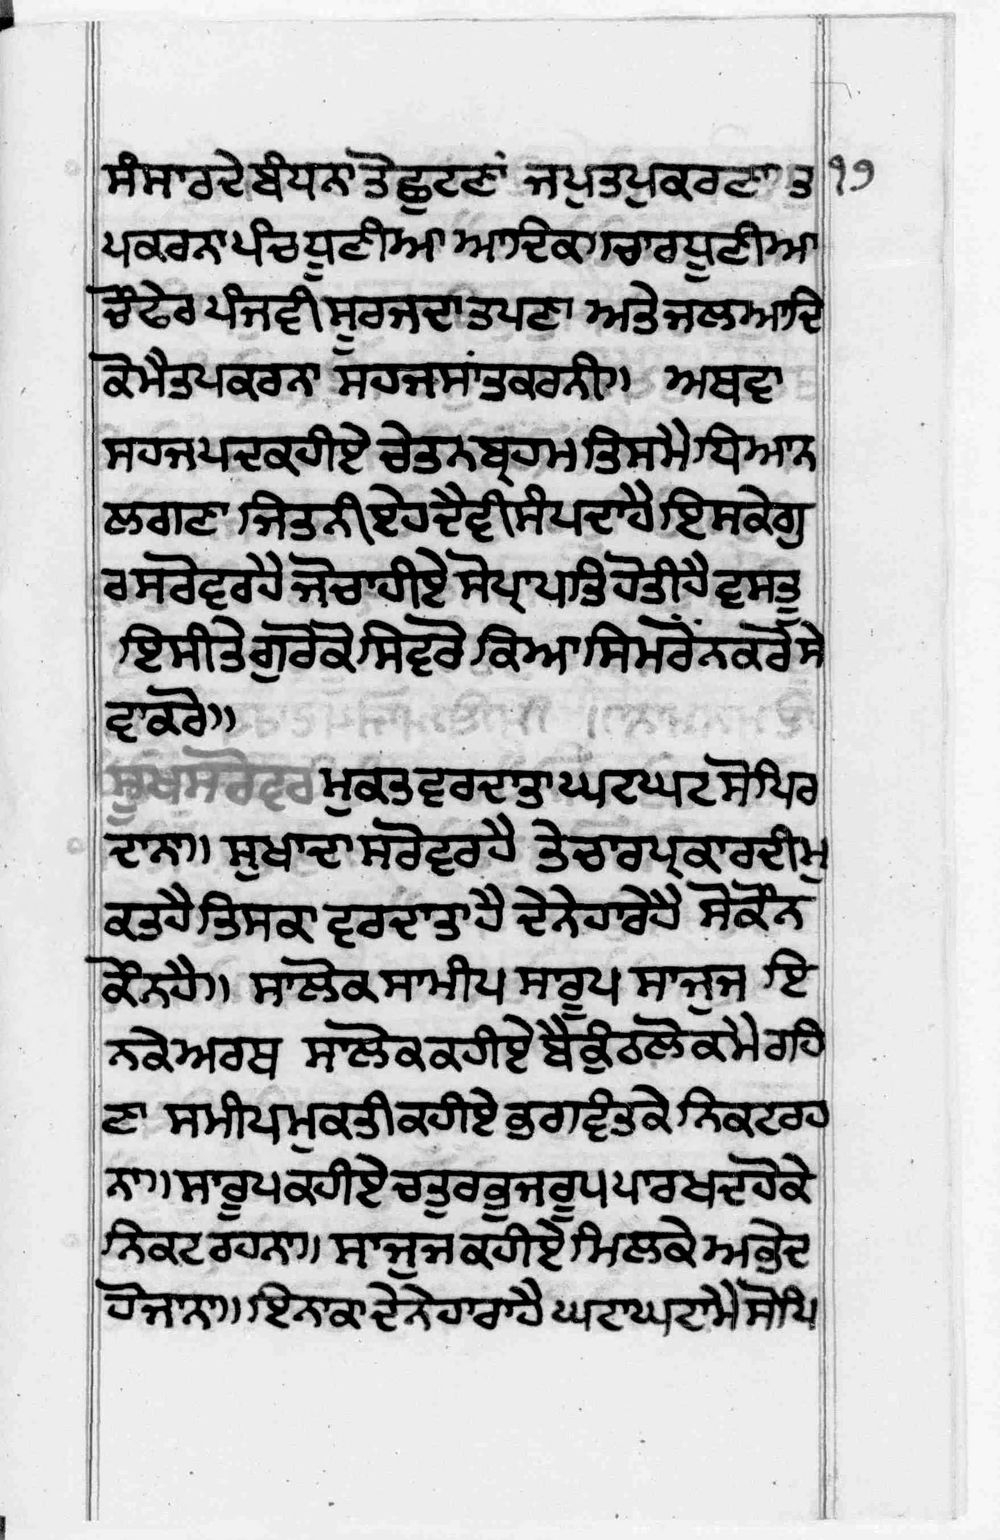 ਸੰਸਾਰਦੇਬੰਧਨਾਤੋਛੁਟਣਾਂ ਜਪੁਤਪੁਕਰਣਾ ਤ ੧੭
ਪਕਰਨਾਪੰਚਧੂਣੀਆ ਆਦਿਕ।ਚਾਰਧੂਣੀਆ
ਚੌਫੇਰਪੰਜਵੀਸੂਰਜਦਾਤਪਣਾ ਅਤੇਜਲਆਦਿ
ਕੋਮੈਤਪਕਰਨਾ ਸਹਜਸਾਂਤਕਰਨੀ॥ ਅਥਵਾ
ਸਹਜਪਦਕਹੀਏ ਚੇਤਨਬ੍ਰਹਮਤਿਸਮੈਧਿਆਨ
ਲਗਣਾ ਜਿਤਨੀਏਹਦੈਵੀਸੰਪਦਾਹੈਇਸਕੇਗੁ
ਰਸਰੋਵਰਹੈਜੋਚਾਹੀਏਸੋਪ੍ਰਾਪਤਿਹੋਤੀਹੈਵਸਤੂ
ਇਸੀਤੇਗੁਰੋਕੋਸਿਵਰੋਕਿਆਸਿਮਰੋਨਕਰੋਸੇ
ਵਾਕਰੋ॥
ਸੁਖਸਰੋਵਰਮੁਕਤਵਰਦਾਤਾਘਟਘਟਸੋਧਿਰ
ਦਾਨਾ॥ਸੁਖਾਦਾਸਰੋਵਰਹੈ ਤੇਚਾਰਪ੍ਰਕਾਰਦੀਮੁ
ਕਤਹੈਤਿਸਕਾ ਵਰਦਾਤਾਹੈ ਦੇਨੇਹਾਰੇਹੈ ਸੋਕੌਨ
ਕੌਨਹੈ॥ ਸਾਲੋਕਸਾਮੀਪ ਸਾਰੂਪ ਸਾਜੁਜ ਇ
ਨਕੇਅਰਥ ਸਾਲੋਕਕਹੀਏਬੈਕੁੰਠਲੋਕਮੈਰਹਿ
ਣਾ ਸਮੀਪਮੁਕਤੀਕਹੀਏਭਗਵੰਤਕੇਨਿਕਟਰਹ
ਨਾ॥ਸਾਰੂਪਕਹੀਏਚਤੁਰਭੁਜਰੂਪਪਾਰਖਦਹੋਕੇ
ਨਿਕਟਰਹਨਾ॥ਸਾਜੁਜਕਹੀਏਮਿਲਕੇਅਭੇਦ
ਹੋਜਾਨਾ॥ਇਨਾਕਾਦੇਨੇਹਾਰਾਹੈਘਟਾਘਟਾਮੈਸੋਧਿ